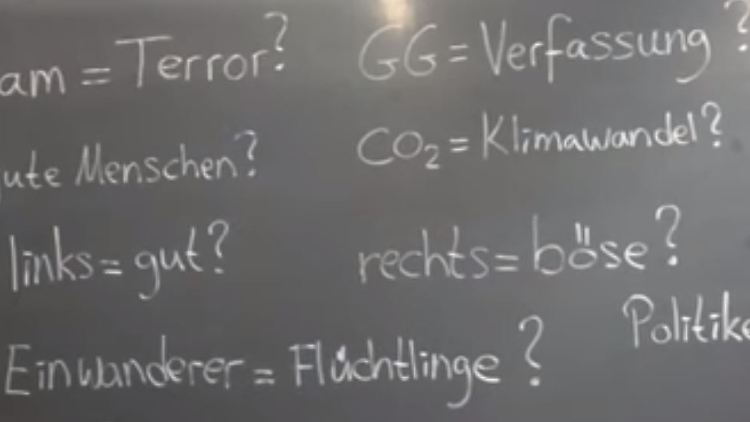 am = Terror?
GG = Verfassung?
ute Menschen?
CO₂ = Klimawandel?
links = gut?
rechts = böse?
Politike
Einwanderer = Flüchtlinge?